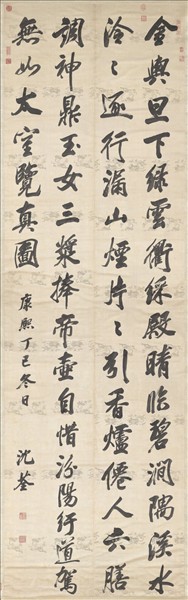 金輿旦下綠雲衢綵殿晴臨碧澗隅溪水
泠〻逐行漏山煙片〻引香爐僊人六膳
調神鼎玉女三漿捧帝壺自惜汾陽紆道駕
無如太室覽真圖
康熙丁巳冬日 沈荃